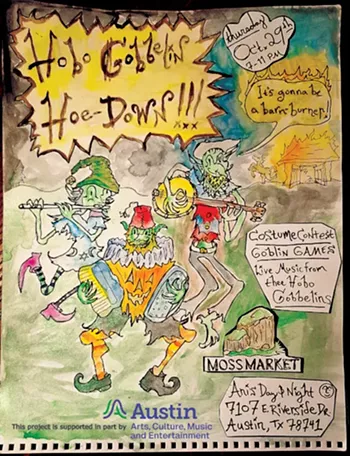 Hobo Gobbelin
Hoe-Down!!!
xxx
thursday
Oct. 29th
7-11 P.M.
It's gonna be
a barn burner!
Costume Contest
Goblin GAMES
Live Music from
thee Hobo
Gobbelins
MOSS MARKET
Ani's Day & Night
7107 E Riverside Dr.
Austin, TX 78741
Austin
This project is supported in part by
Arts, Culture, Music
and Entertainment